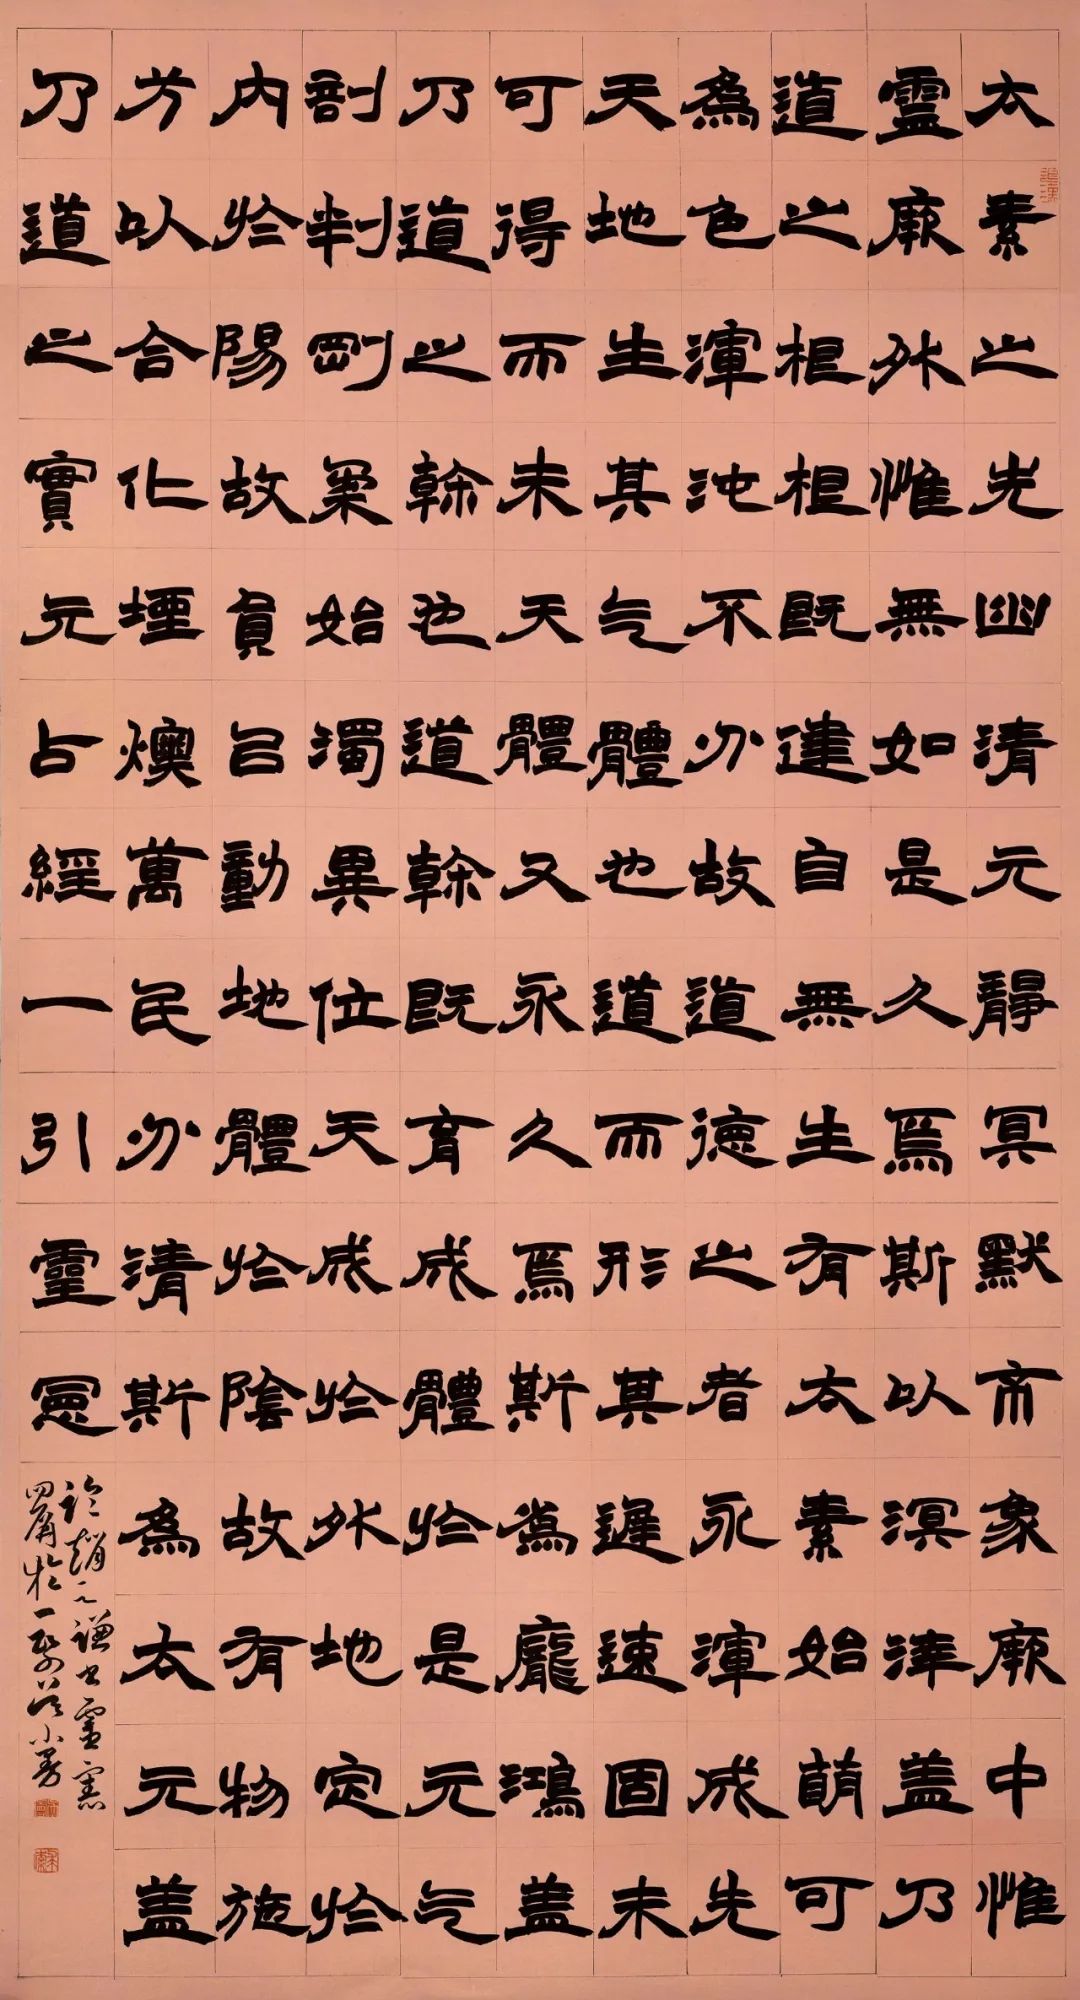 太素之先幽清元靜冥默象厥中惟
靈厥外惟無如是久焉斯以溟涬盖乃
道之根根既建自無生有太素始萌可
為色渾沌不分故道德之者永渾成先
天地生其气體也道而形其遲速固未
可得而未天體又永久焉斯為龐鴻盖
乃道之幹也道幹既育成體於是元气
剖判剛柔始濁異位天成於外地定於
內於陽故員以動地體於陰故有物施
方以合化堙燠萬民分清斯為太元盖
乃道之實元占經一引靈憲
臨趙之謙書靈憲
四屏於一小勇